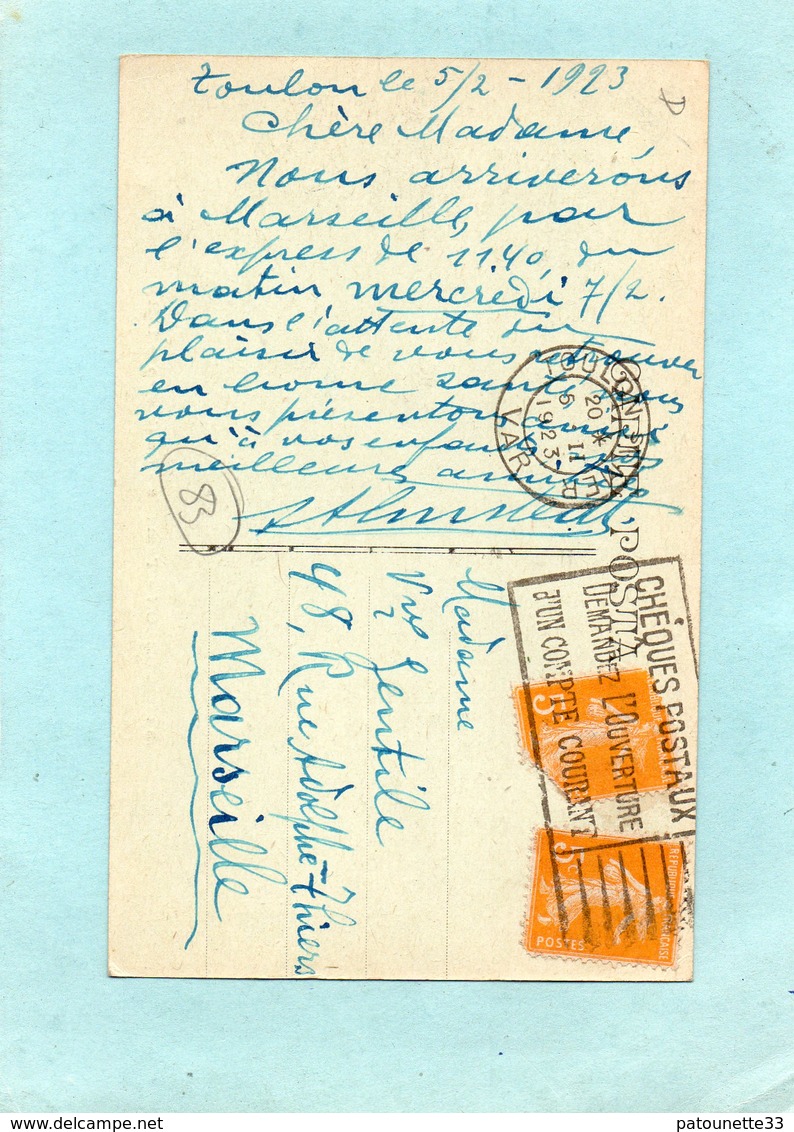 Toulon le 5/2 - 1923
Chère Madame,
Nous arriverons
à Marseille, par
l'express de 11.40, du
matin mercredi 7/2.
Dans l'attente du
plaisir de vous retrouver
en bonne santé, nous
vous présentons, ainsi
qu'à vos enfants, nos
meilleures amitiés
83
D
TOULON S MER
20 *
5 II
1923
VAR
CARTE POSTALE
CHÈQUES POSTAUX
DEMANDEZ L'OUVERTURE
D'UN COMPTE COURANT
5c
5c
REPUBLIQUE FRANÇAISE
POSTES
Madame
Vve Gentile
48, Rue Adolphe-Thiers
Marseille
www.delcampe.net
patounette33